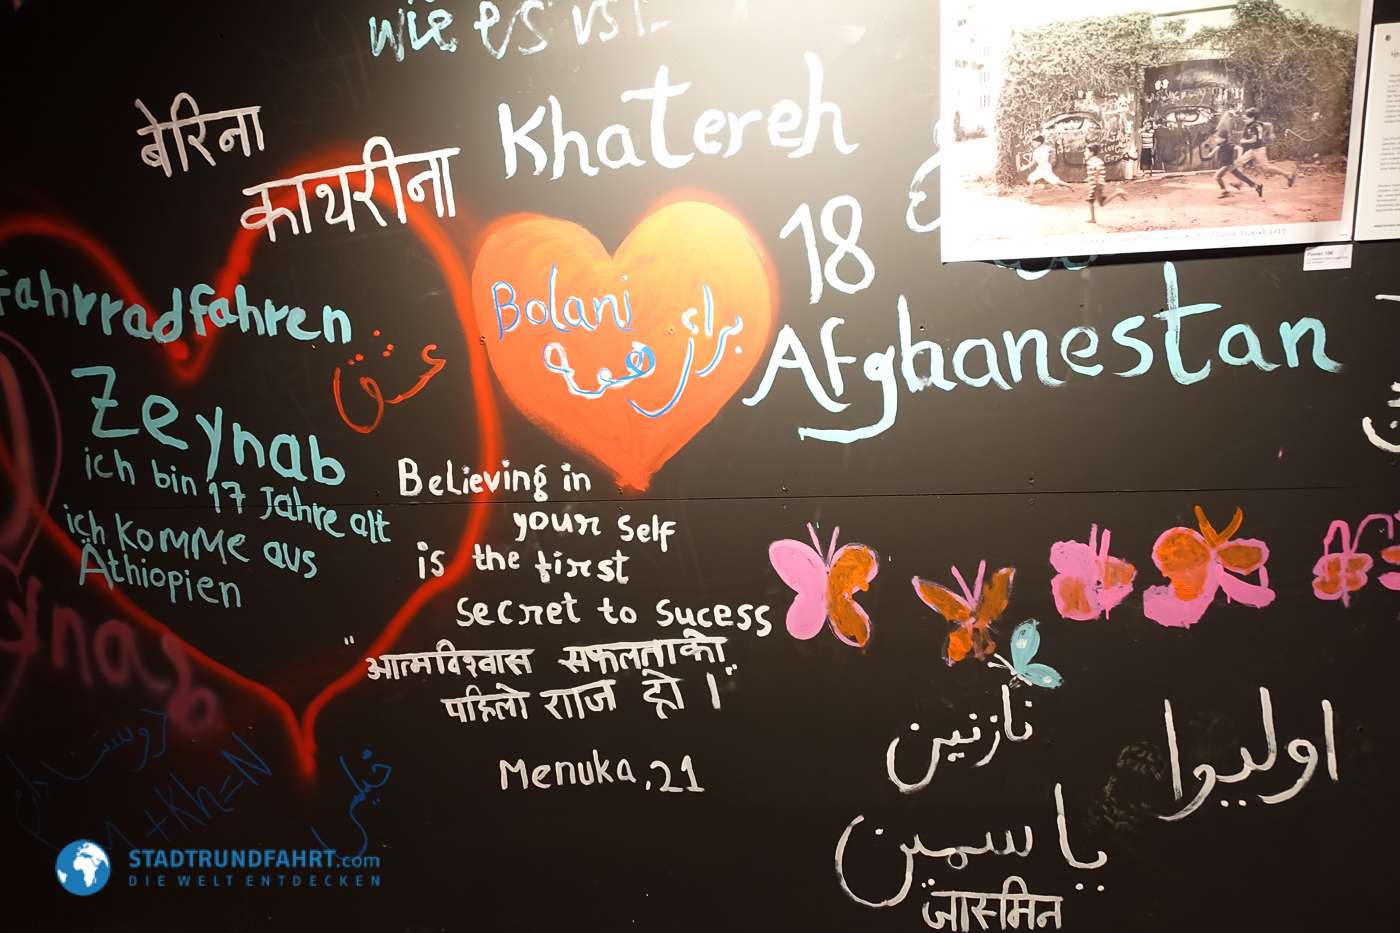 wie es ist
बेरिना
काथरीना
Khatereh
18
Afghanestan
Fahrradfahren
Bolani
برای
همه
عشق
Zeynab
ich bin 17 Jahre alt
ich komme aus
Äthiopien
Believing in
your self
is the first
secret to sucess
"आत्मविश्वास सफलताको
पहिलो राज हो ।"
Menuka, 21
نازنین
اولیوا
یاسمین
जास्मिन
دوست
خیلی
+Kh=N
Poster 10€
STADTRUNDFAHRT.com
DIE WELT ENTDECKEN